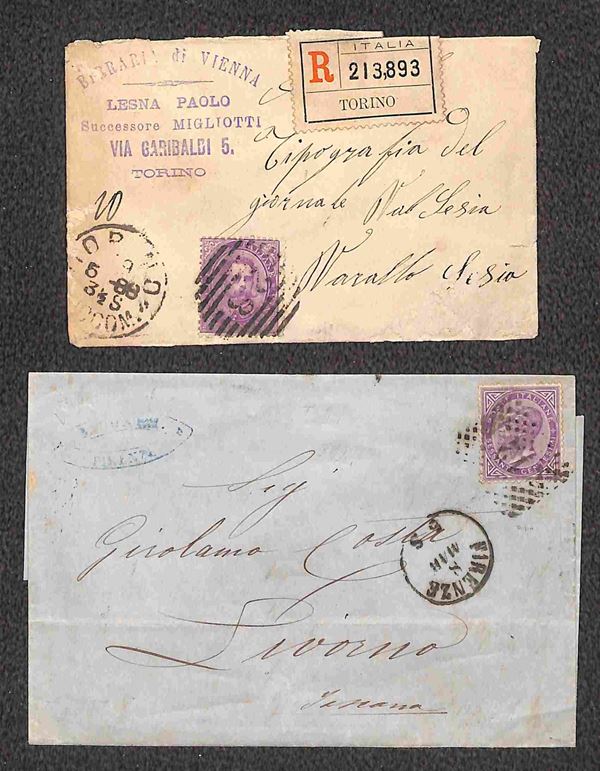 BIRRARIA di VIENNA
LESNA PAOLO
Successore MIGLIOTTI
VIA GARIBALDI 5.
TORINO
ITALIA
R 213,893
TORINO
Tipografia del
giornale Val Sesia
Varallo Sesia
10
TORINO
88
FIRENZE
Sig
Girolamo Costa
Livorno
Toscana
FIRENZE
8
MAR